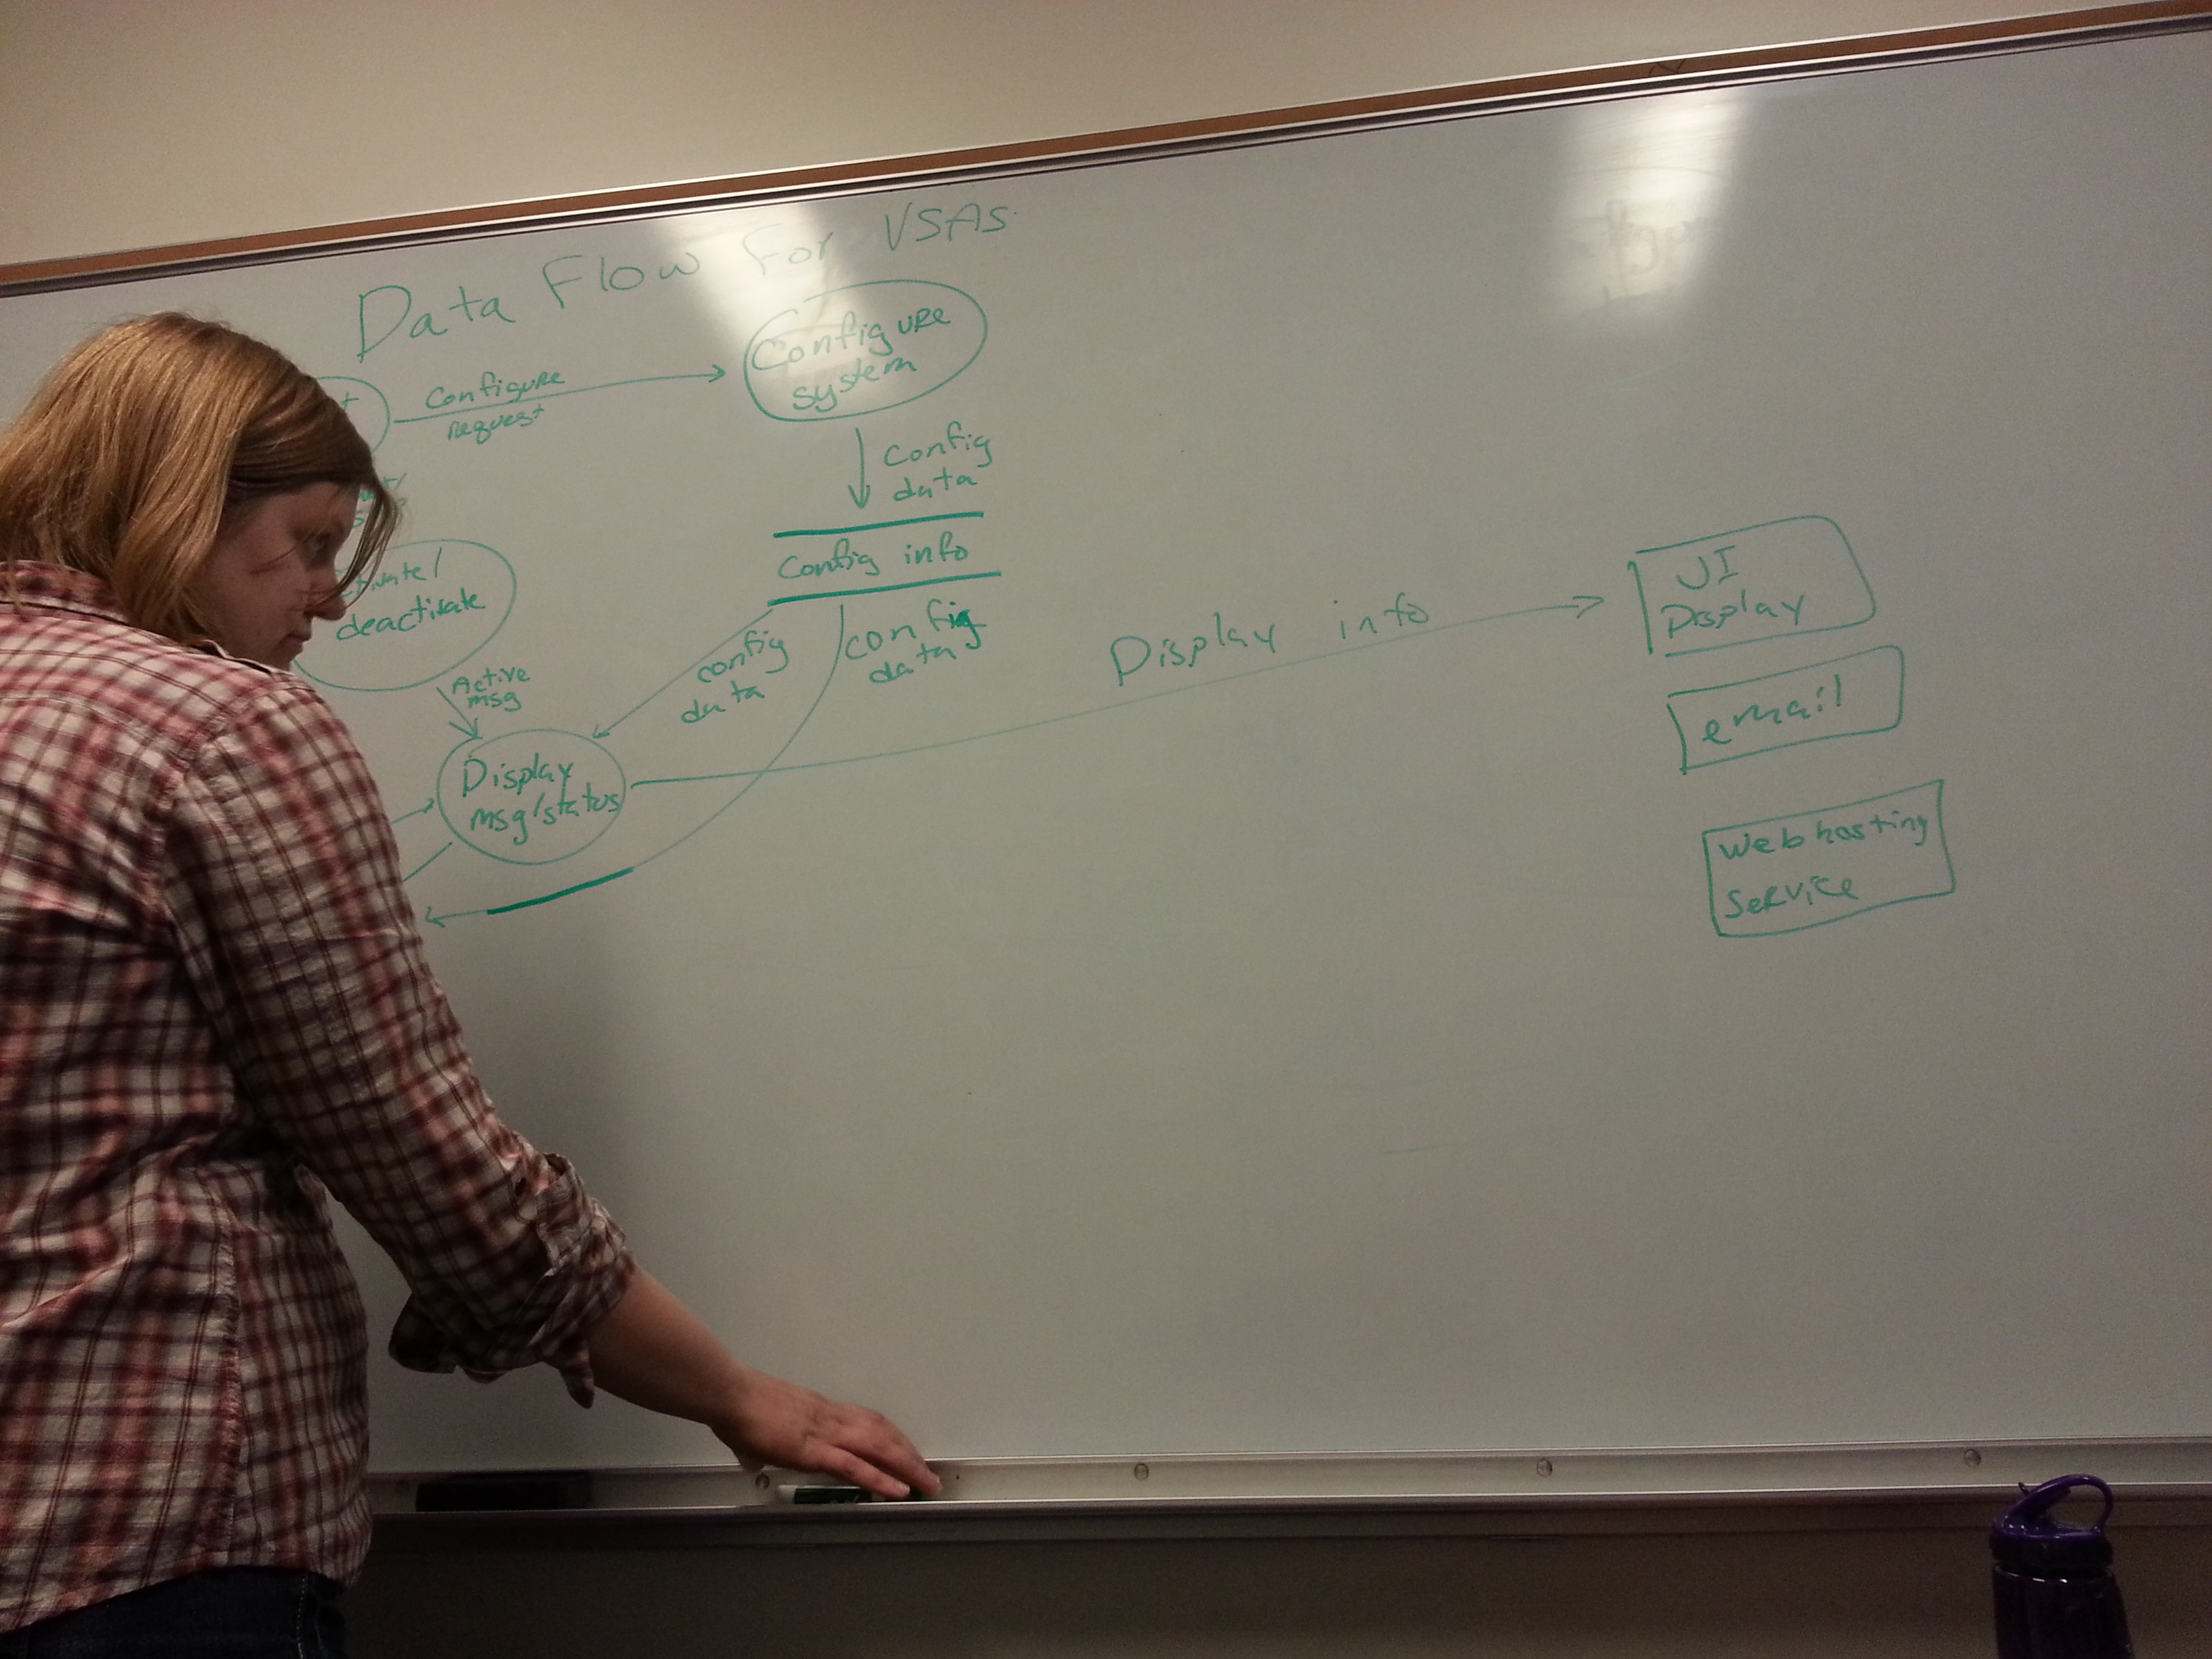 Data Flow For VSAS
Configure
request
Configure
system
Config
data
Config info
deactivate
Active
msg
config
data
config
data
Display
msg/status
Display info
UI
Display
email
Web hosting
Service